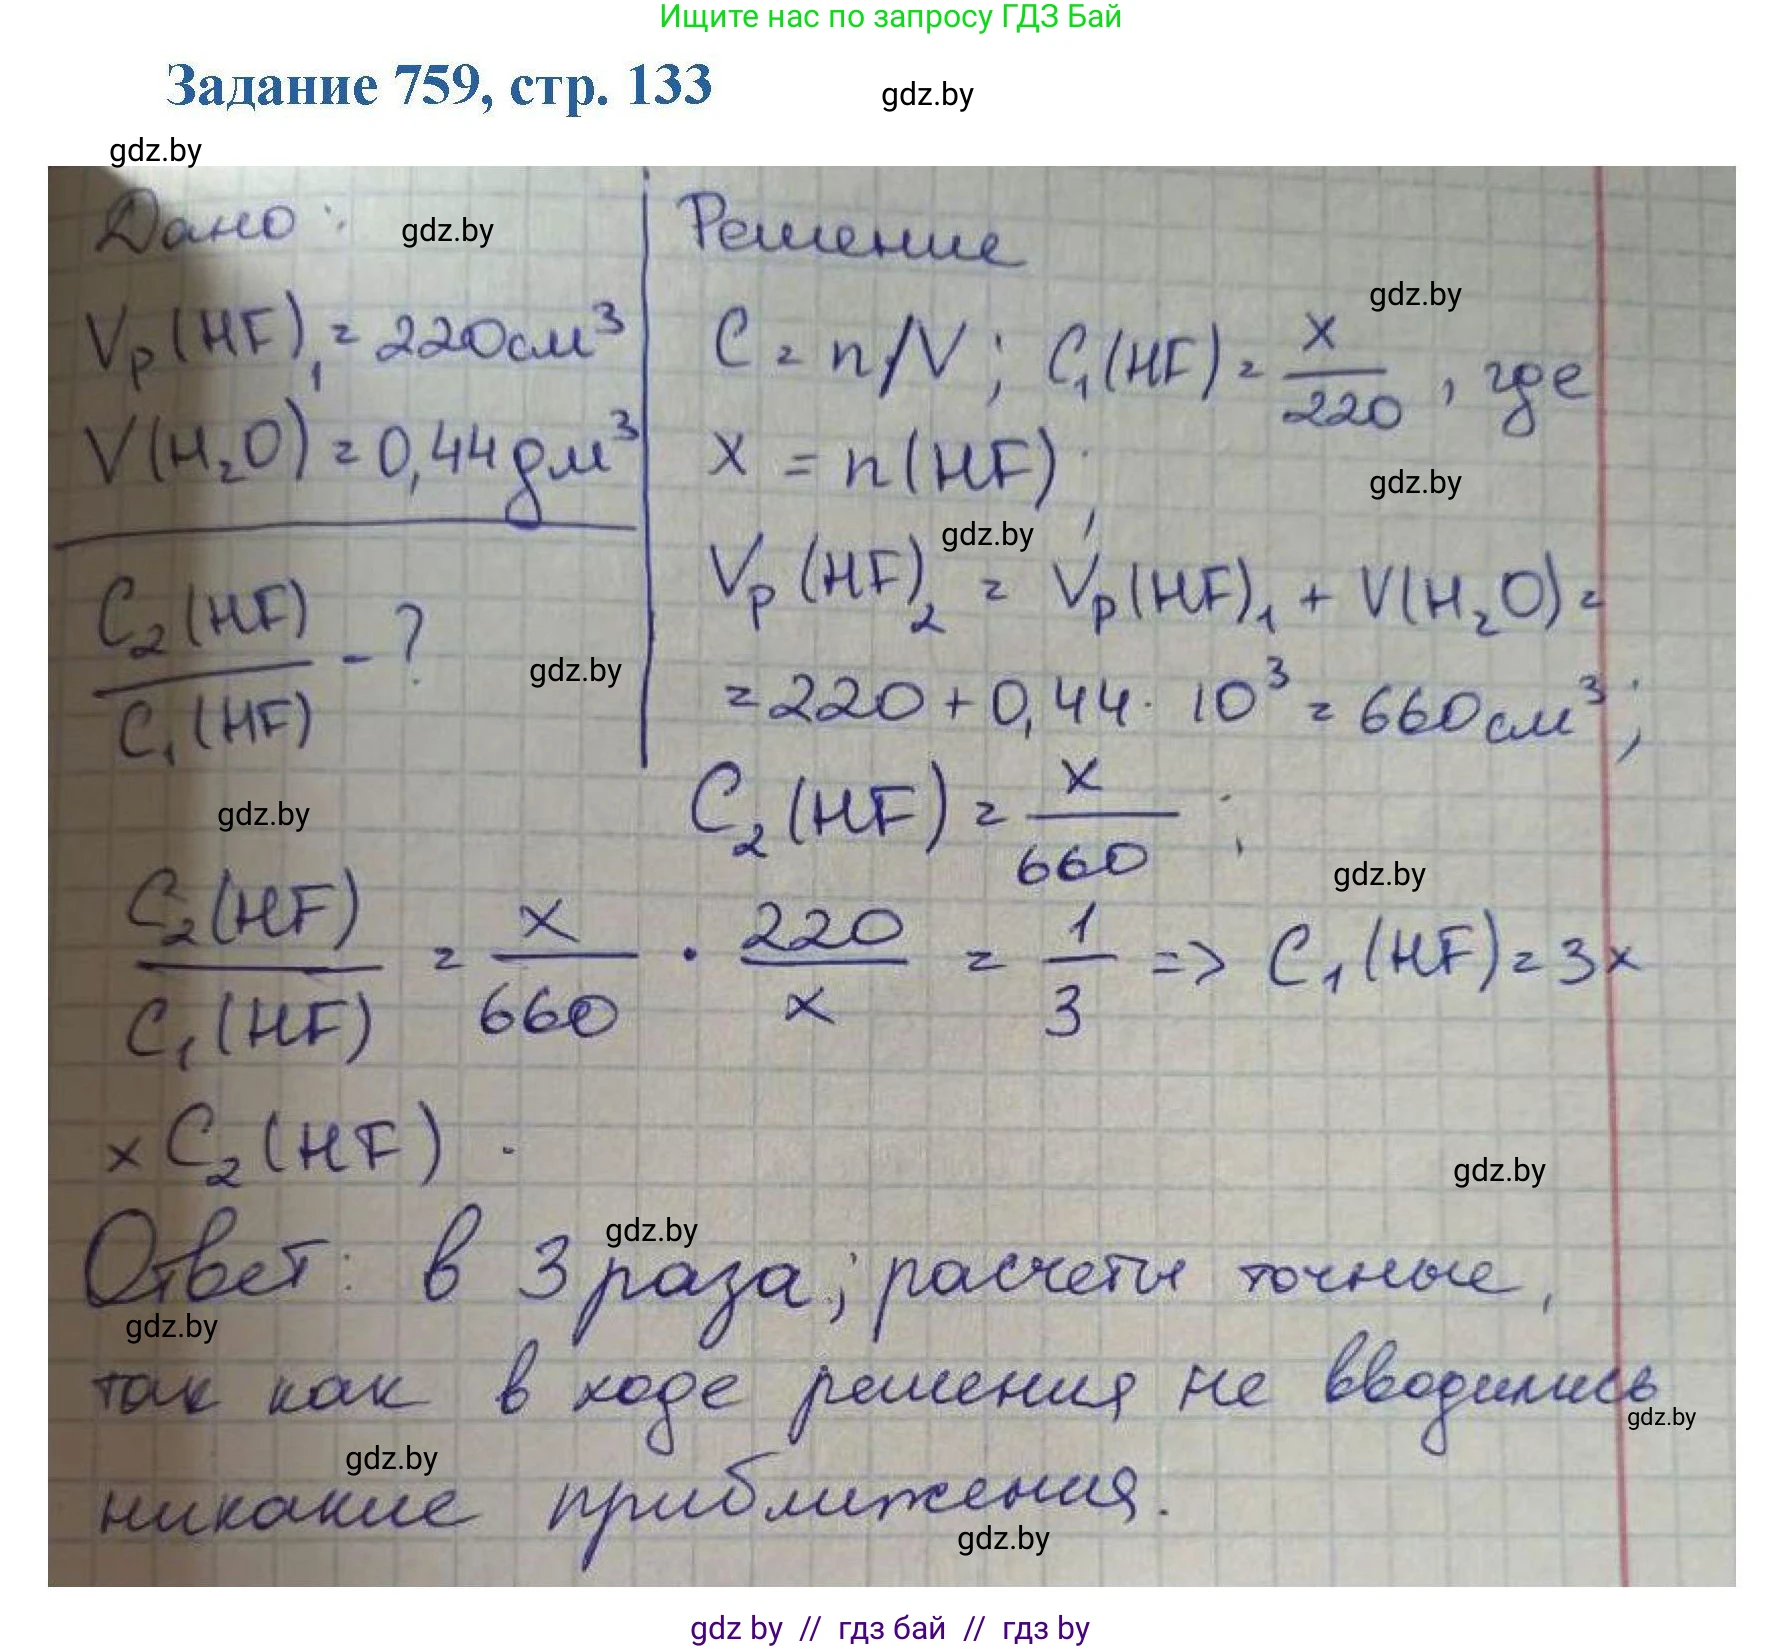 Ищите нас по запросу ГДЗ Бай
Задание 759, стр. 133
gdz.by
gdz.by
Дано:
gdz.by
Vр(HF)₁ = 220 см³
V(H₂O) = 0,44 дм³
C₂(HF) / C₁(HF) - ?
gdz.by
Решение
gdz.by
C = n/V; C₁(HF) = x/220, где
x = n(HF);
gdz.by
gdz.by
Vр(HF)₂ = Vр(HF)₁ + V(H₂O) =
= 220 + 0,44 · 10³ = 660 см³;
C₂(HF) = x/660;
gdz.by
gdz.by
C₂(HF) / C₁(HF) = x/660 · 220/x = 1/3 => C₁(HF) = 3 ×
× C₂(HF).
gdz.by
gdz.by
Ответ: в 3 раза; расчеты точные,
gdz.by
так как в ходе решения не вводились
gdz.by
gdz.by
никакие приближения.
gdz.by
gdz by // гдз бай // гдз by